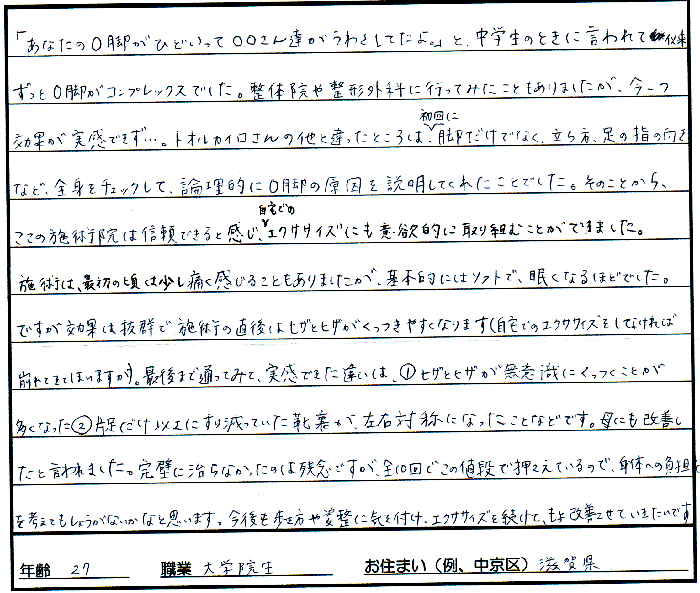 「あなたのO脚がひどいって〇〇さん達がうわさしてたよ。」と、中学生のときに言われて以来
ずっとO脚がコンプレックスでした。整体院や整形外科に行ってみたこともありましたが、今一つ
効果が実感できず…。トオルカイロさんの他と違ったところは、初回に脚だけでなく、立ち方、足の指の向き
など、全身をチェックして、論理的にO脚の原因を説明してくれたことでした。そのことから、
ここの施術院は信頼できると感じ、自宅でのエクササイズにも意欲的に取り組むことができました。
施術は、最初の頃は少し痛く感じることもありましたが、基本的にはソフトで、眠くなるほどでした。
ですが効果は抜群で施術の直後はヒザとヒザがくっつきやすくなります(自宅でのエクササイズをしなければ
崩れてきてしまいますが)。最後まで通ってみて、実感できた違いは、①ヒザとヒザが無意識にくっつくことが
多くなった②片足だけ以上にすり減っていた靴裏が、左右対称になったことなどです。母にも改善し
たと言われました。完璧に治らなかったのは残念ですが、全10回でこの値段で押さえているので、身体への負担
を考えてもしょうがないかなと思います。今後も歩き方や姿勢に気を付け、エクササイズを続けて、もっと改善させていきたいです
年齢 27 職業 大学院生 お住まい(例、中京区) 滋賀県